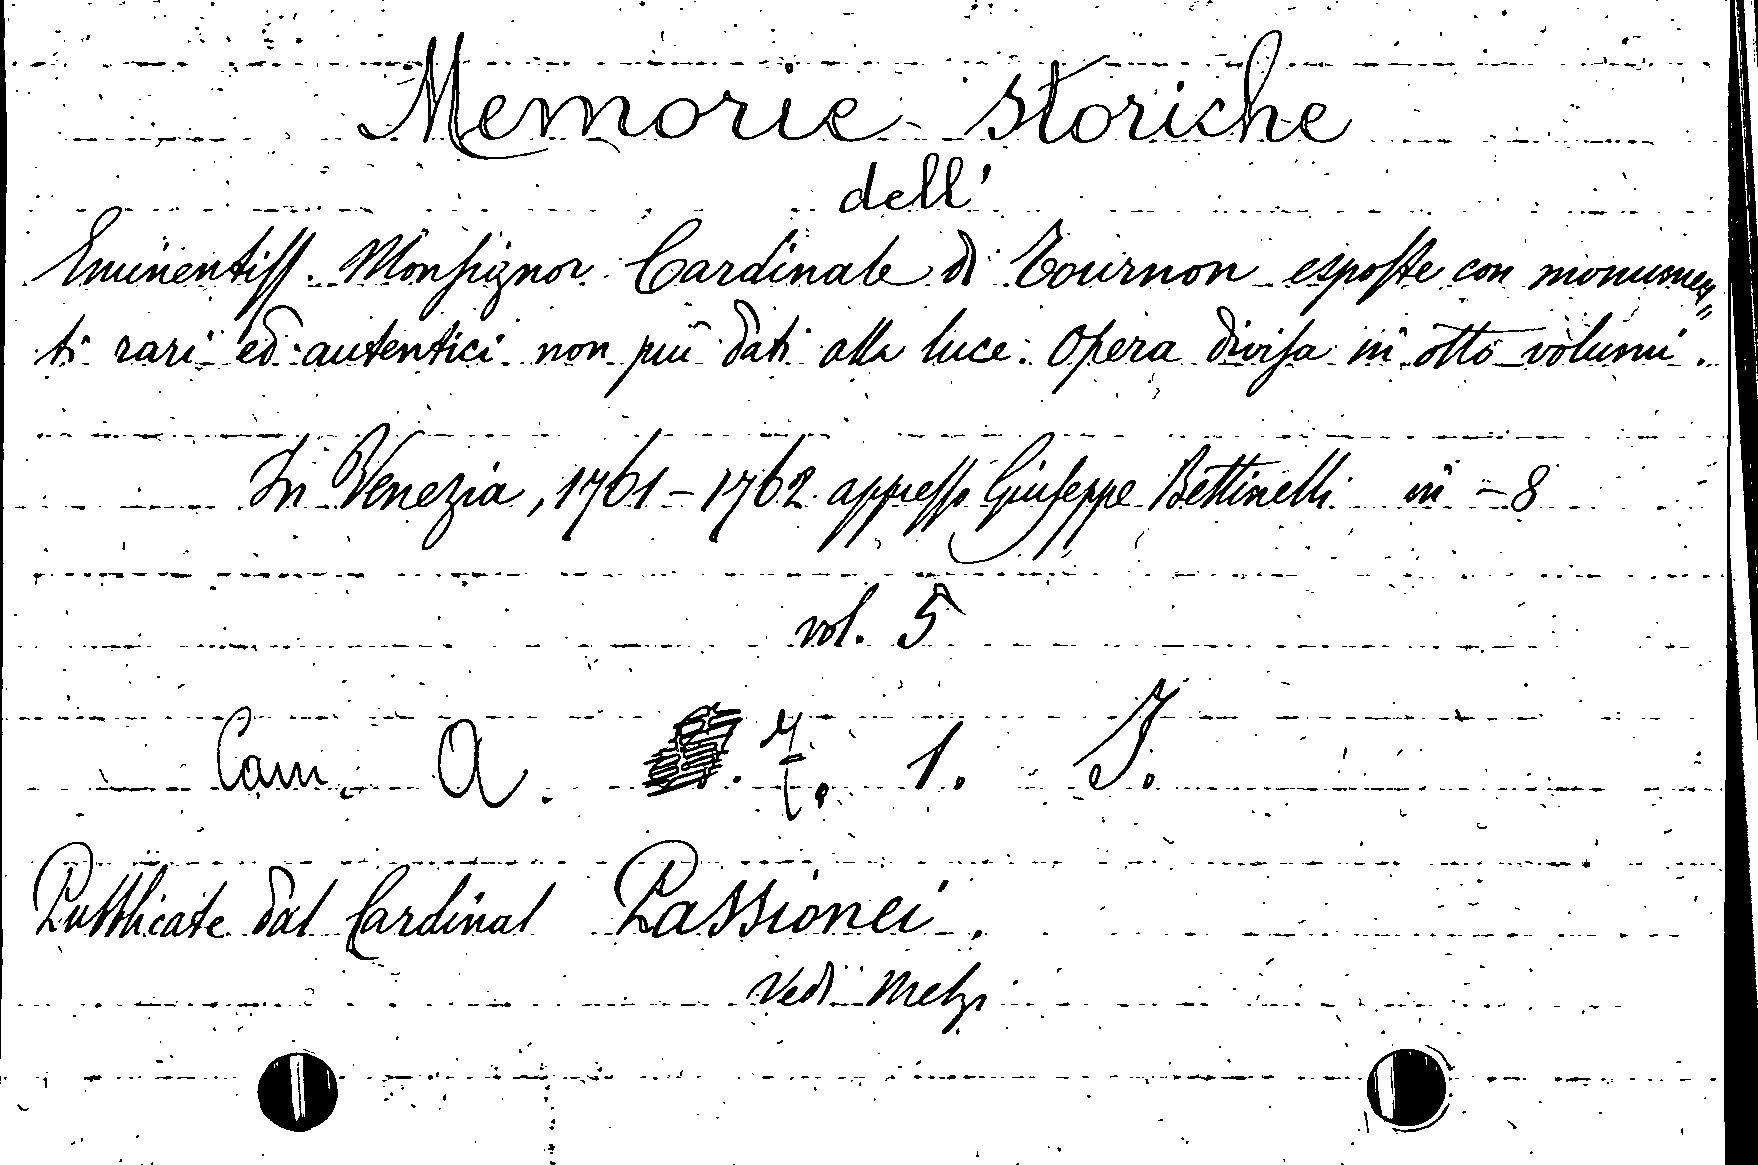 Memorie storiche
dell'
Eminentiss. Monsignor Cardinale di Tournon esposte con monumen„
ti rari ed autentici non più dati alla luce. Opera divisa in otto volumi.
In Venezia, 1761 - 1762 appresso Giuseppe Bettinelli in - 8
vol. 5
Cam. A. 7. 1. I.
Pubblicate dal Cardinal Passionei.
Vedi Melzi